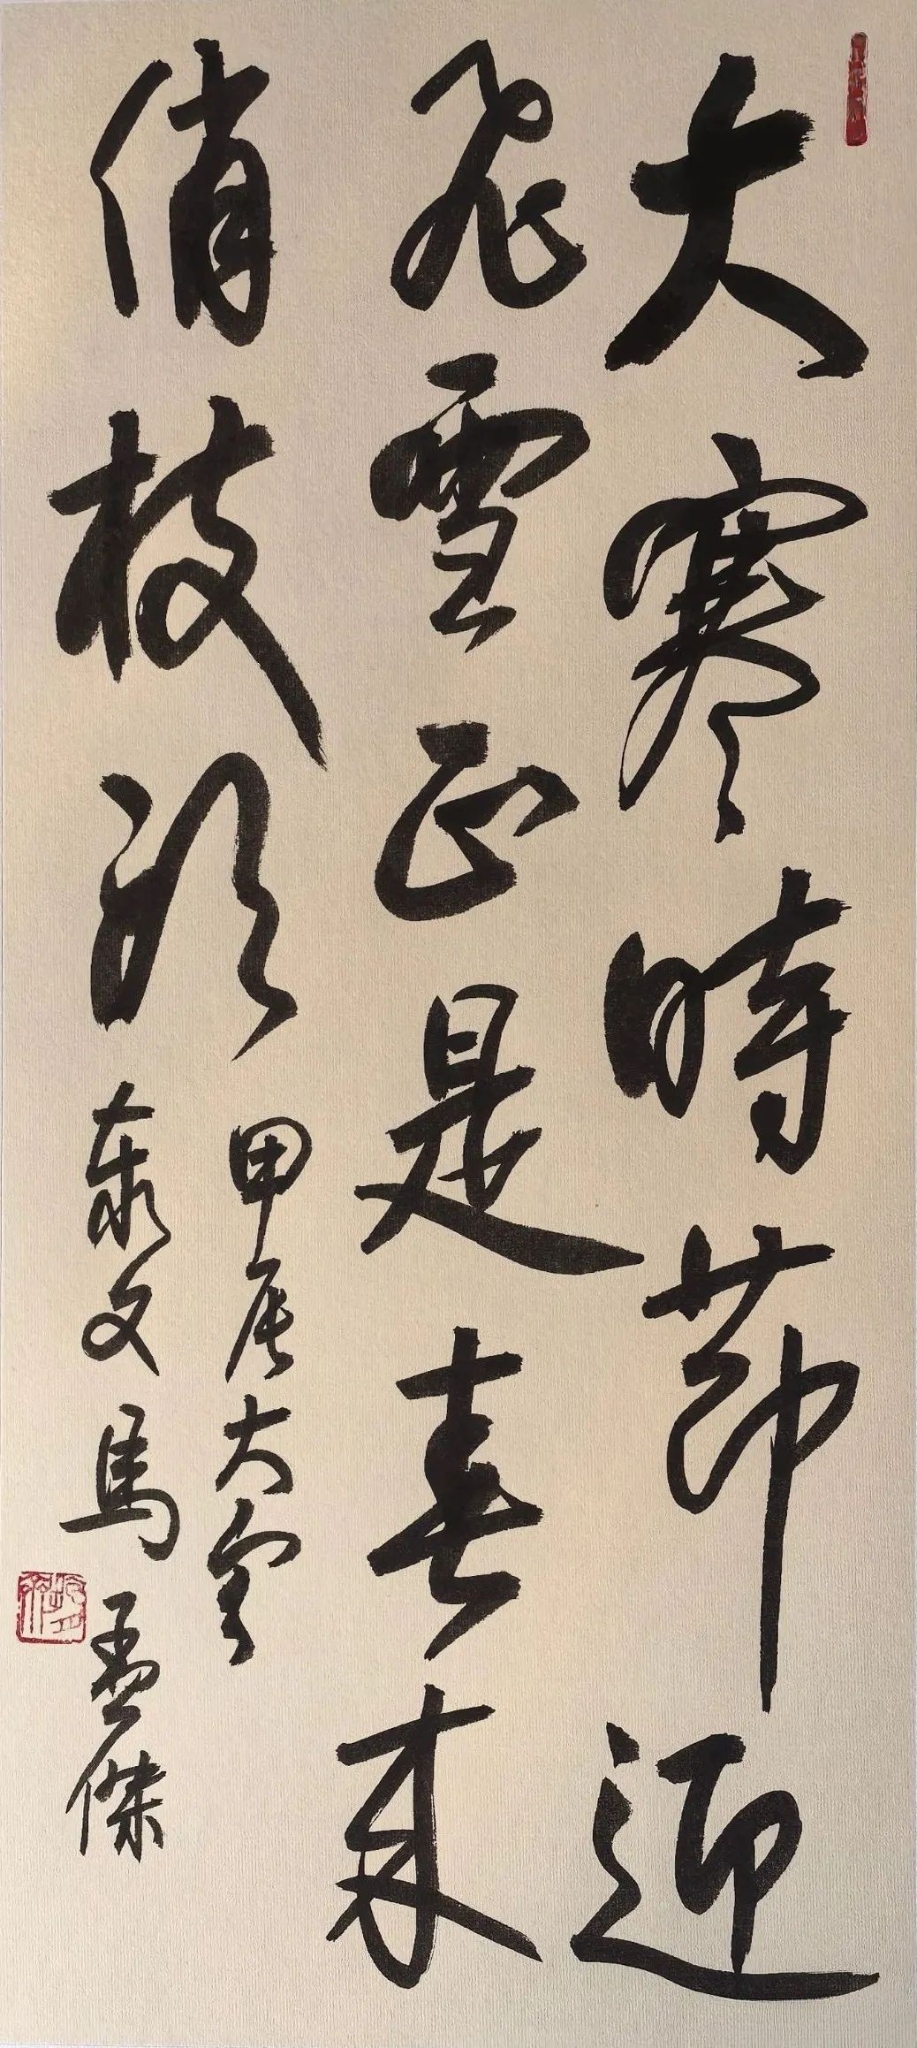 大寒時節迎
飛雪正是春來
俏枝頭
甲辰大寒
泰文馬孟傑